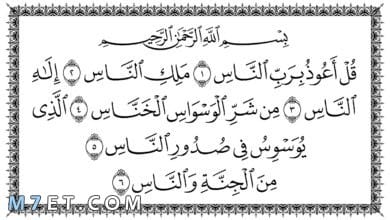 بِسْمِ ٱللَّهِ ٱلرَّحْمَٰنِ ٱلرَّحِيمِ
قُلْ أَعُوذُ بِرَبِّ ٱلنَّاسِ ١ مَلِكِ ٱلنَّاسِ ٢ إِلَٰهِ
ٱلنَّاسِ ٣ مِن شَرِّ ٱلْوَسْوَاسِ ٱلْخَنَّاسِ ٤ ٱلَّذِى
يُوَسْوِسُ فِى صُدُورِ ٱلنَّاسِ ٥
مِنَ ٱلْجِنَّةِ وَٱلنَّاسِ ٦
MZET.COM